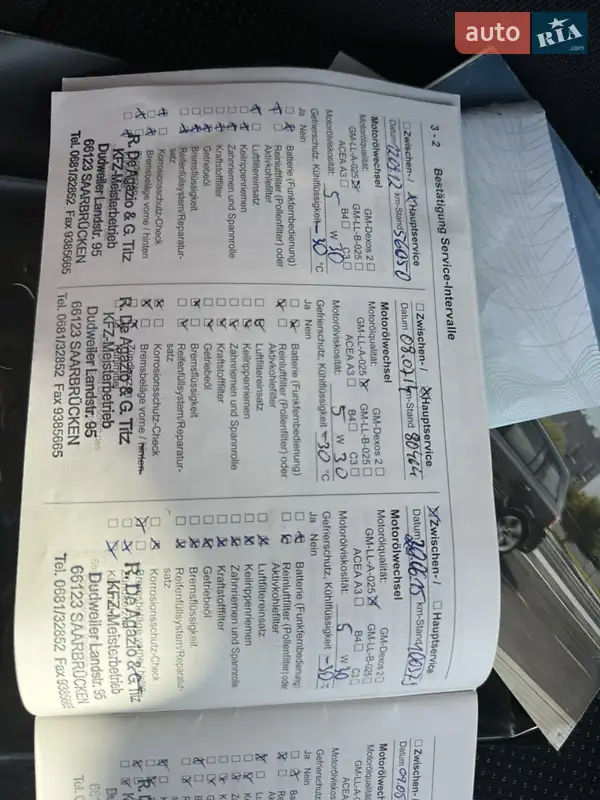 auto RIA.com
3 - 2 Bestätigung Service-Intervalle
☐ Zwischen- / ☒ Hauptservice
km-Stand 56050
Motorölwechsel
Motorölqualität: GM-Dexos 2 ☐
GM-LL-A-025 ☒ GM-LL-B-025 ☐
ACEA A3 ☐ B4 ☐ C3 ☐
Motorölviskosität: 5 W 30
Gefrierschutz, Kühlflüssigkeit -30 °C
Ja Nein
Batterie (Funkfernbedienung)
Reinluftfilter (Pollenfilter) oder
Aktivkohlefilter
Luftfiltereinsatz
Keilrippenriemen
Zahnriemen und Spannrolle
Kraftstofffilter
Getriebeöl
Bremsflüssigkeit
Reifenfüllsystem/Reparatur-
satz
Korrosionsschutz-Check
Bremsbeläge vorne / hinten
R. De Agazio & G. Titz
KFZ-Meisterbetrieb
Dudweiler Landstr. 95
66123 SAARBRÜCKEN
Tel. 0681/32852 Fax 9385665
☐ Zwischen- / ☒ Hauptservice
Datum 08.07.14 km-Stand 80464
Motorölwechsel
Motorölqualität: GM-Dexos 2 ☐
GM-LL-A-025 ☒ GM-LL-B-025 ☐
ACEA A3 ☐ B4 ☐ C3 ☐
Motorölviskosität: 5 W 30
Gefrierschutz, Kühlflüssigkeit -30 °C
Ja Nein
Batterie (Funkfernbedienung)
Reinluftfilter (Pollenfilter) oder
Aktivkohlefilter
Luftfiltereinsatz
Keilrippenriemen
Zahnriemen und Spannrolle
Kraftstofffilter
Getriebeöl
Bremsflüssigkeit
Reifenfüllsystem/Reparatur-
satz
Korrosionsschutz-Check
Bremsbeläge vorne / hinten
R. De Agazio & G. Titz
KFZ-Meisterbetrieb
Dudweiler Landstr. 95
66123 SAARBRÜCKEN
Tel. 0681/32852 Fax 9385665
☒ Zwischen- / ☐ Hauptservice
Datum km-Stand
Motorölwechsel
Motorölqualität: GM-Dexos 2 ☐
GM-LL-A-025 ☒ GM-LL-B-025 ☐
ACEA A3 ☐ B4 ☐ C3 ☐
Motorölviskosität: 5 W 30
Gefrierschutz, Kühlflüssigkeit -30 °C
Ja Nein
Batterie (Funkfernbedienung)
Reinluftfilter (Pollenfilter) oder
Aktivkohlefilter
Luftfiltereinsatz
Keilrippenriemen
Zahnriemen und Spannrolle
Kraftstofffilter
Getriebeöl
Bremsflüssigkeit
Reifenfüllsystem/Reparatur-
satz
Korrosionsschutz-Check
R. De Agazio & G. Titz
KFZ-Meisterbetrieb
Dudweiler Landstr. 95
66123 SAARBRÜCKEN
Tel. 0681/32852 Fax 9385665
☐ Zwischen- /
Datum 09.05
Motorölwechsel
Motorölqualität
GM-LL-A-025
ACEA
Motorölviskosität
Gefrierschutz
Ja Nein